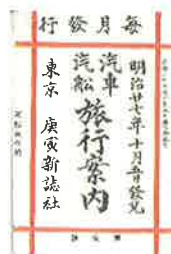 毎月發行
明治廿七年十月五日發兌
汽車
汽船
旅行案内
東京 庚寅新誌社